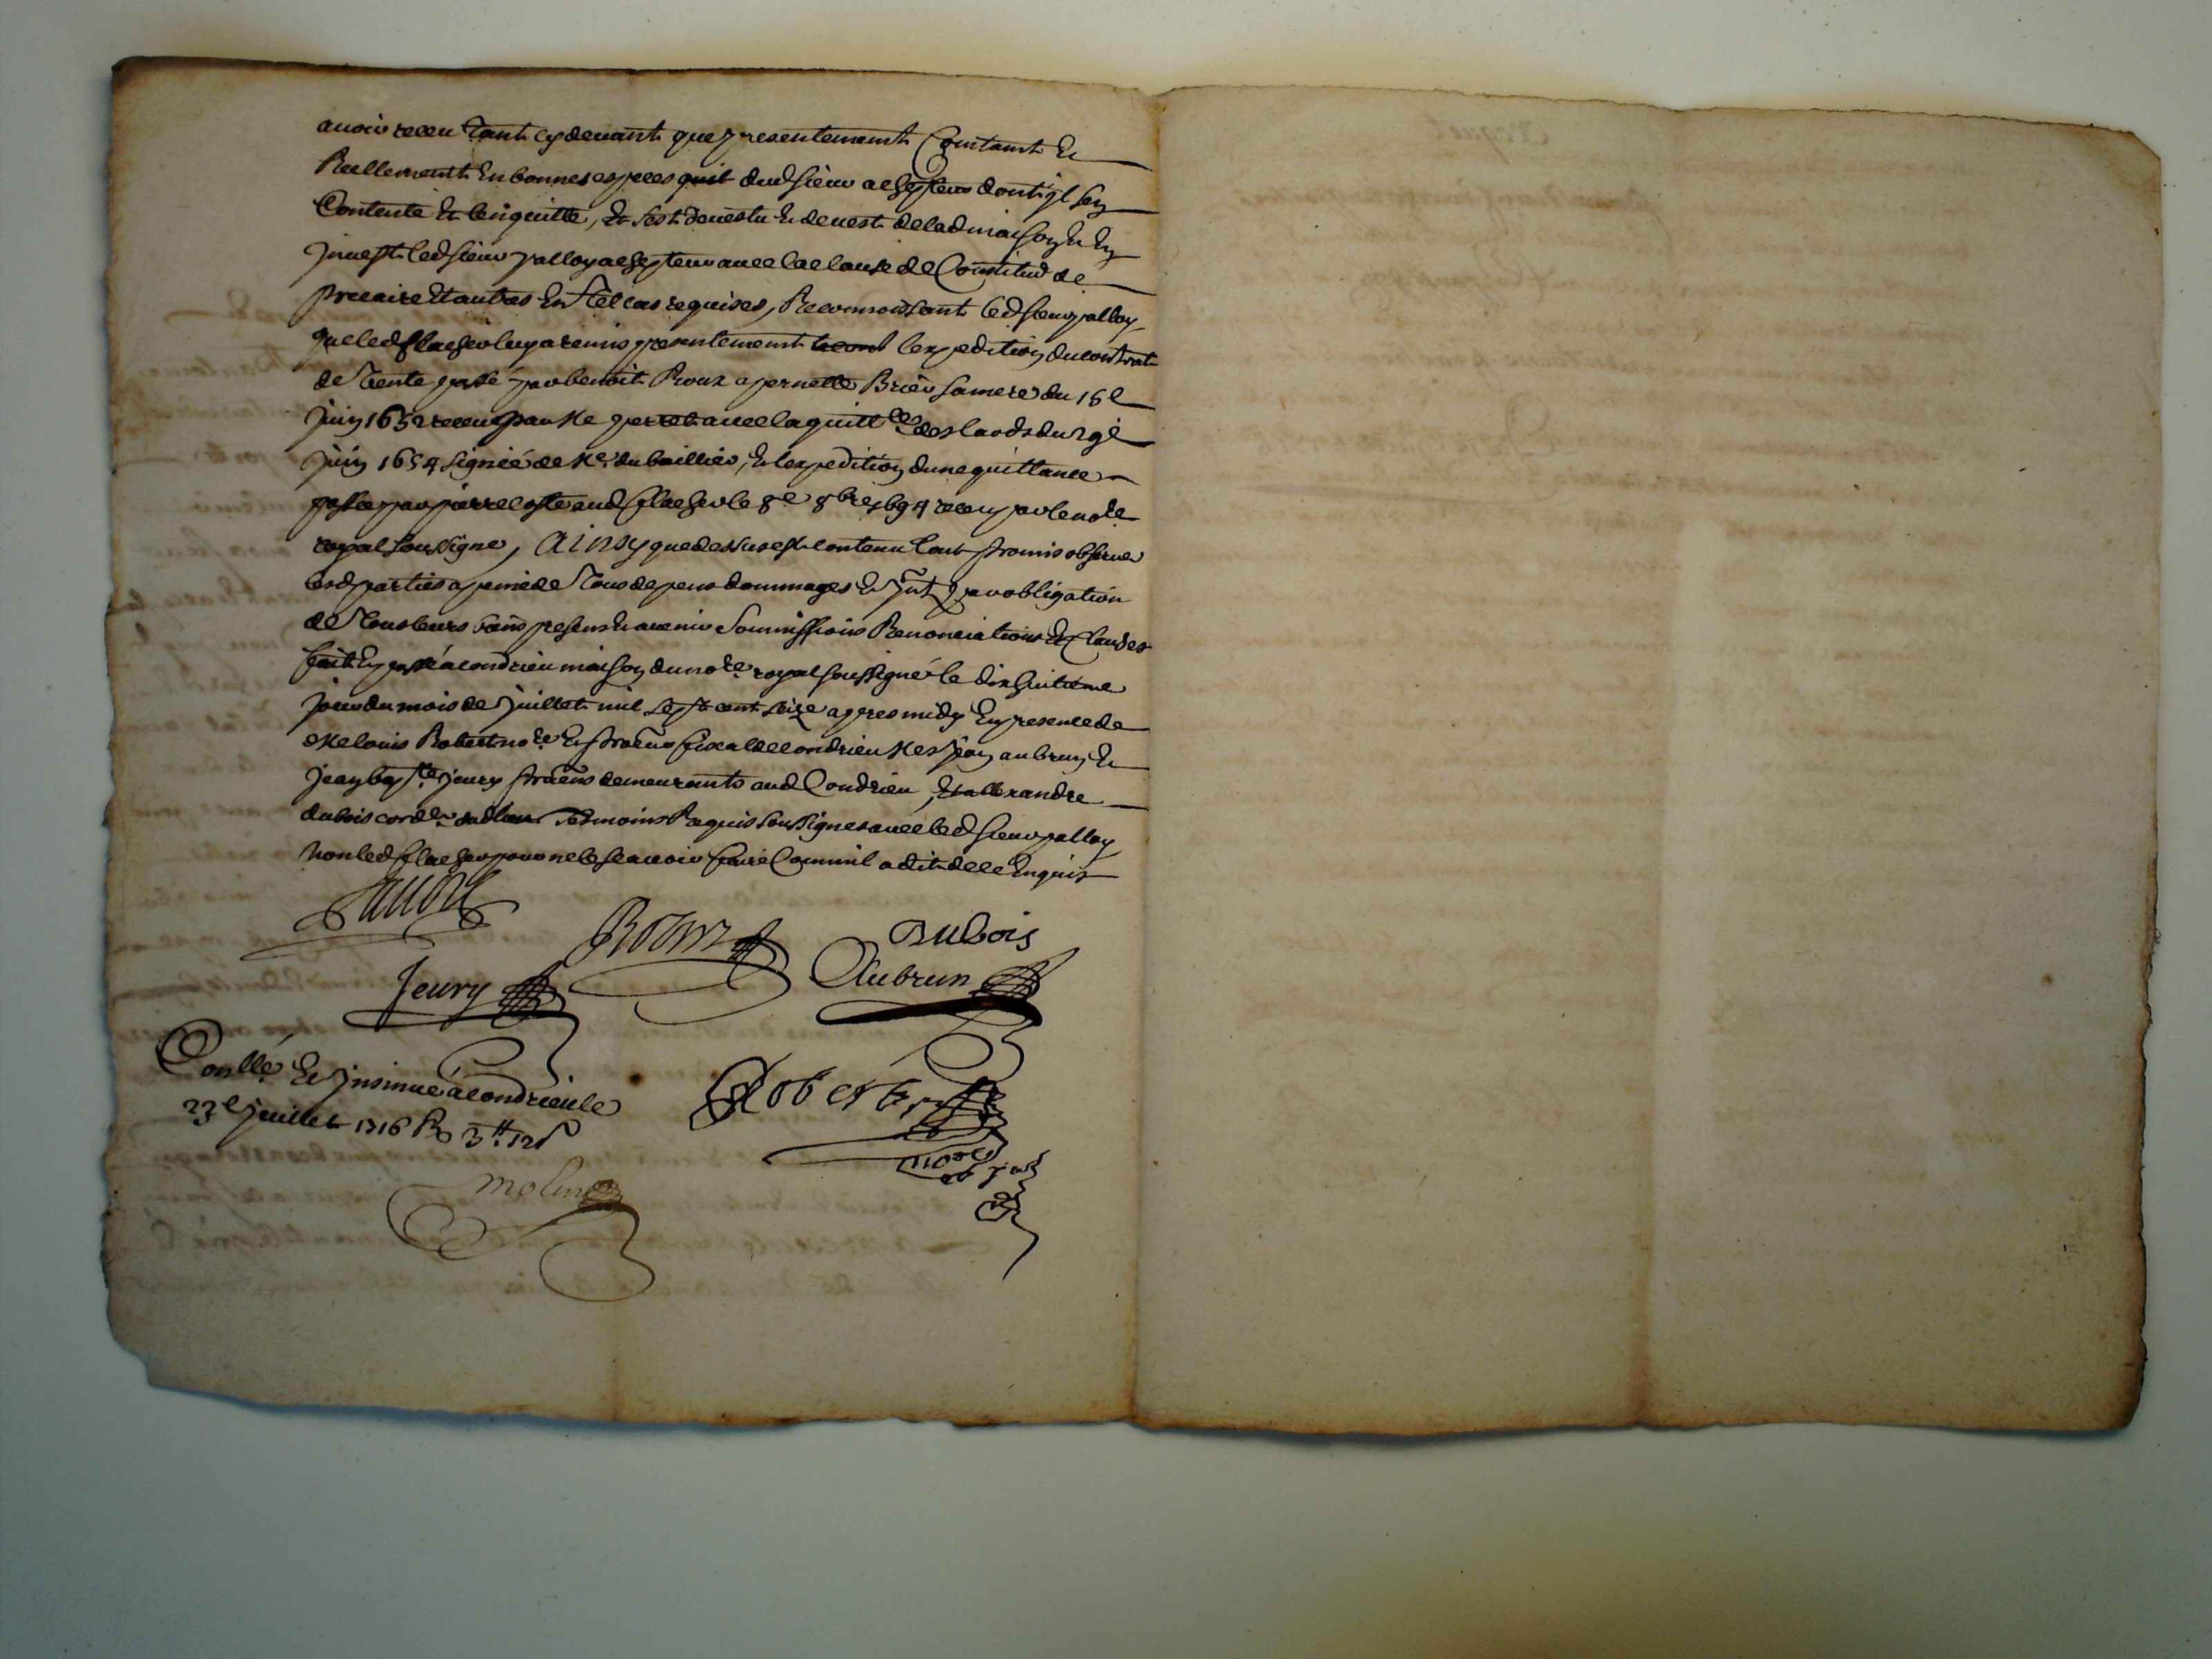 avoir receu tant cy devant que presentement Contant Et
Reellement En bonnes especes quil dud sieur achepteur dont jl sen
Contente Et len quitte, Et sest devestu Et devest de lad maison Et En
jnvest led sieur palloy achepteur avec la clause de Constitud de
precaire Et autres En tel cas requises, Reconnoissant led sieur palloy
que led flacher luy a remis presentement lexpedition du contrat
de vente passé par benoit Roux a pernette Brier sa mere du 18e
juin 1652 receu par Me perret avec la quittce des laods du 29e
juin 1654 signée de Me dubaillier, Et lexpedition dune quittance
passee par pierre coste aud flacher le 8e 8bre 1694 receu par le nore
royal soussigne, Ainsy que dessus est contenu lont promis observer
lesd parties a peine de tous depens dommages Et jnts par obligation
de tous leurs biens presens Et avenir Soumissions Renonciations Et Clauses
fait Et passé a condrieu maison du nore royal soussigné le dixhuitieme
jour du mois de juillet mil sept cent seize apres midy En presence de
Me louis Robert nore Et procur fiscal de condrieu Mes jean aubrun Et
jean bapte jeury procurs demeurants aud Condrieu, Et allexandre
dubois cordr tesmoins Requis soussignes avec led sieur palloy
Non led flacher pour ne le sçavoir faire Comm il a dit de ce Enquis
Dubois
Jeury
Aubrun
Conllé Et jnsinué a condrieu le
23e juillet 1716 R 3tt 12s
Robert
nore
molin